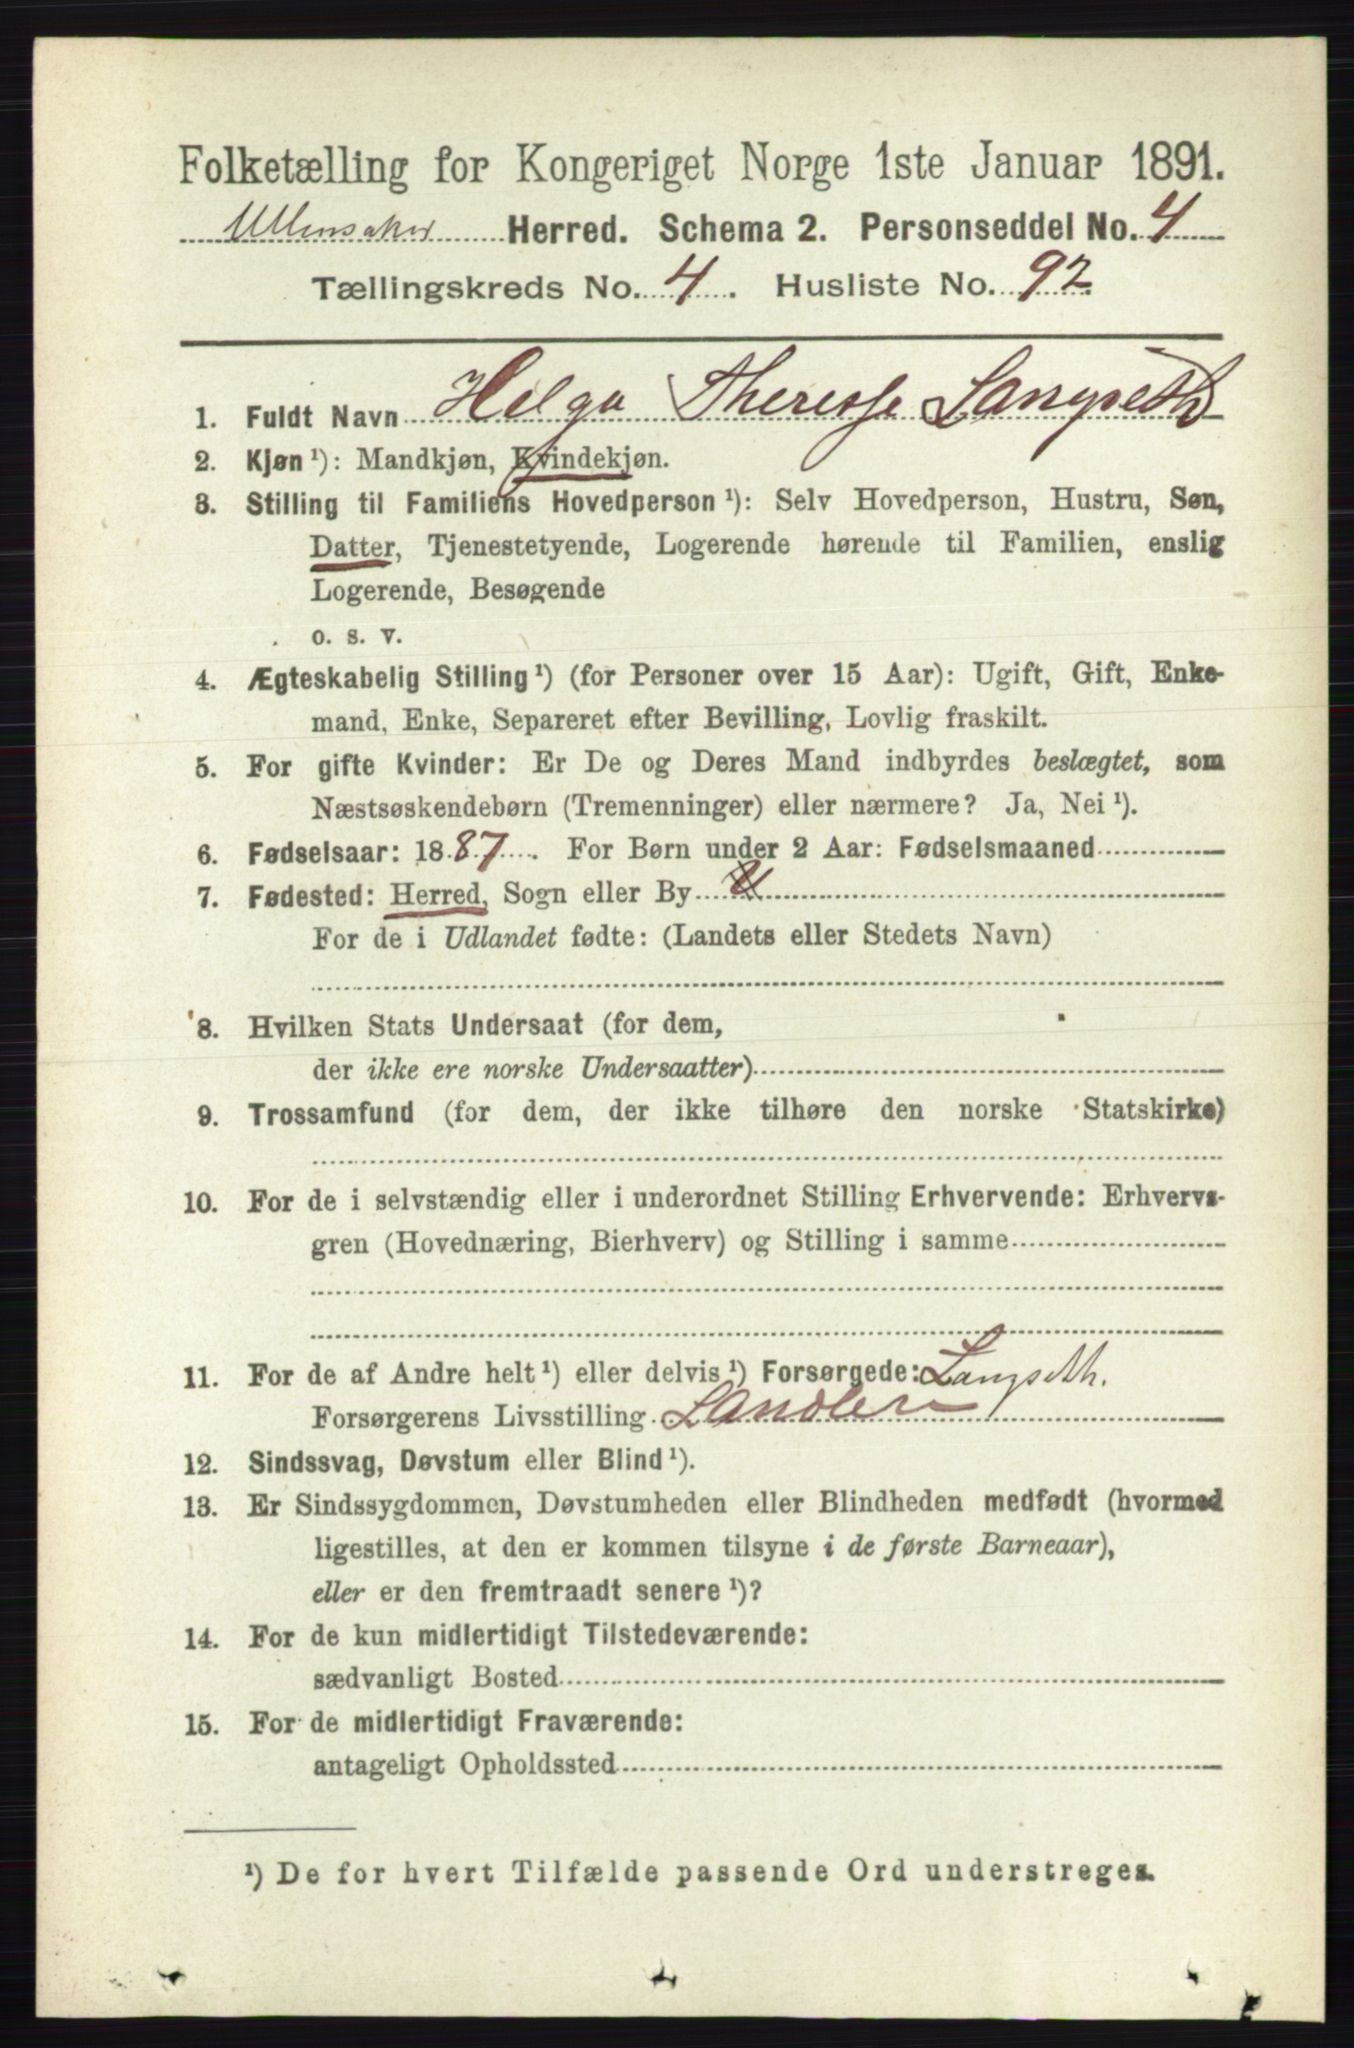 Folketælling for Kongeriget Norge 1ste Januar 1891.
Ullensaker Herred. Schema 2. Personseddel No. 4
Tællingskreds No. 4. Husliste No. 92.
1. Fuldt Navn Helga Theresse Langseth
2. Kjøn ¹): Mandkjøn, Kvindekjøn.
3. Stilling til Familiens Hovedperson ¹): Selv Hovedperson, Hustru, Søn,
Datter, Tjenestetyende, Logerende hørende til Familien, enslig
Logerende, Besøgende
o. s. v.
4. Ægteskabelig Stilling ¹) (for Personer over 15 Aar): Ugift, Gift, Enke-
mand, Enke, Separeret efter Bevilling, Lovlig fraskilt.
5. For gifte Kvinder: Er De og Deres Mand indbyrdes beslægtet, som
Næstsøskendebørn (Tremenninger) eller nærmere? Ja, Nei ¹).
6. Fødselsaar: 1887. For Børn under 2 Aar: Fødselsmaaned
7. Fødested: Herred, Sogn eller By U
For de i Udlandet fødte: (Landets eller Stedets Navn)
8. Hvilken Stats Undersaat (for dem,
der ikke ere norske Undersaatter)
9. Trossamfund (for dem, der ikke tilhøre den norske Statskirke)
10. For de i selvstændig eller i underordnet Stilling Erhvervende: Erhvervs-
gren (Hovednæring, Bierhverv) og Stilling i samme
11. For de af Andre helt ¹) eller delvis ¹) Forsørgede: Langseth.
Forsørgerens Livsstilling
12. Sindssvag, Døvstum eller Blind ¹).
13. Er Sindssygdommen, Døvstumheden eller Blindheden medfødt (hvormed
ligestilles, at den er kommen tilsyne i de første Barneaar),
eller er den fremtraadt senere ¹)?
14. For de kun midlertidigt Tilstedeværende:
sædvanligt Bosted
15. For de midlertidigt Fraværende:
antageligt Opholdssted
¹) De for hvert Tilfælde passende Ord understreges.